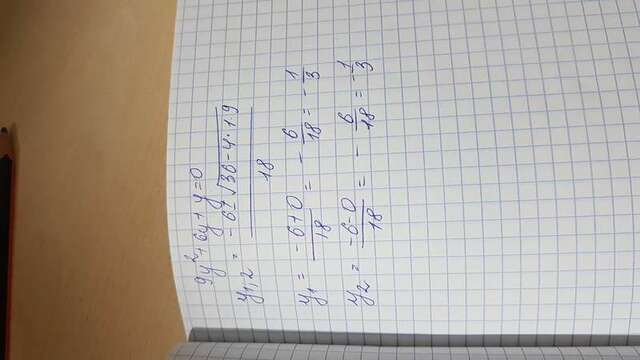 9y² + 6y + y = 0
y₁,₂ = (-6 ± √(36 - 4 · 1 · 9)) / 18
y₁ = (-6 + 0) / 18 = - 6/18 = - 1/3
y₂ = (-6 - 0) / 18 = - 6/18 = - 1/3